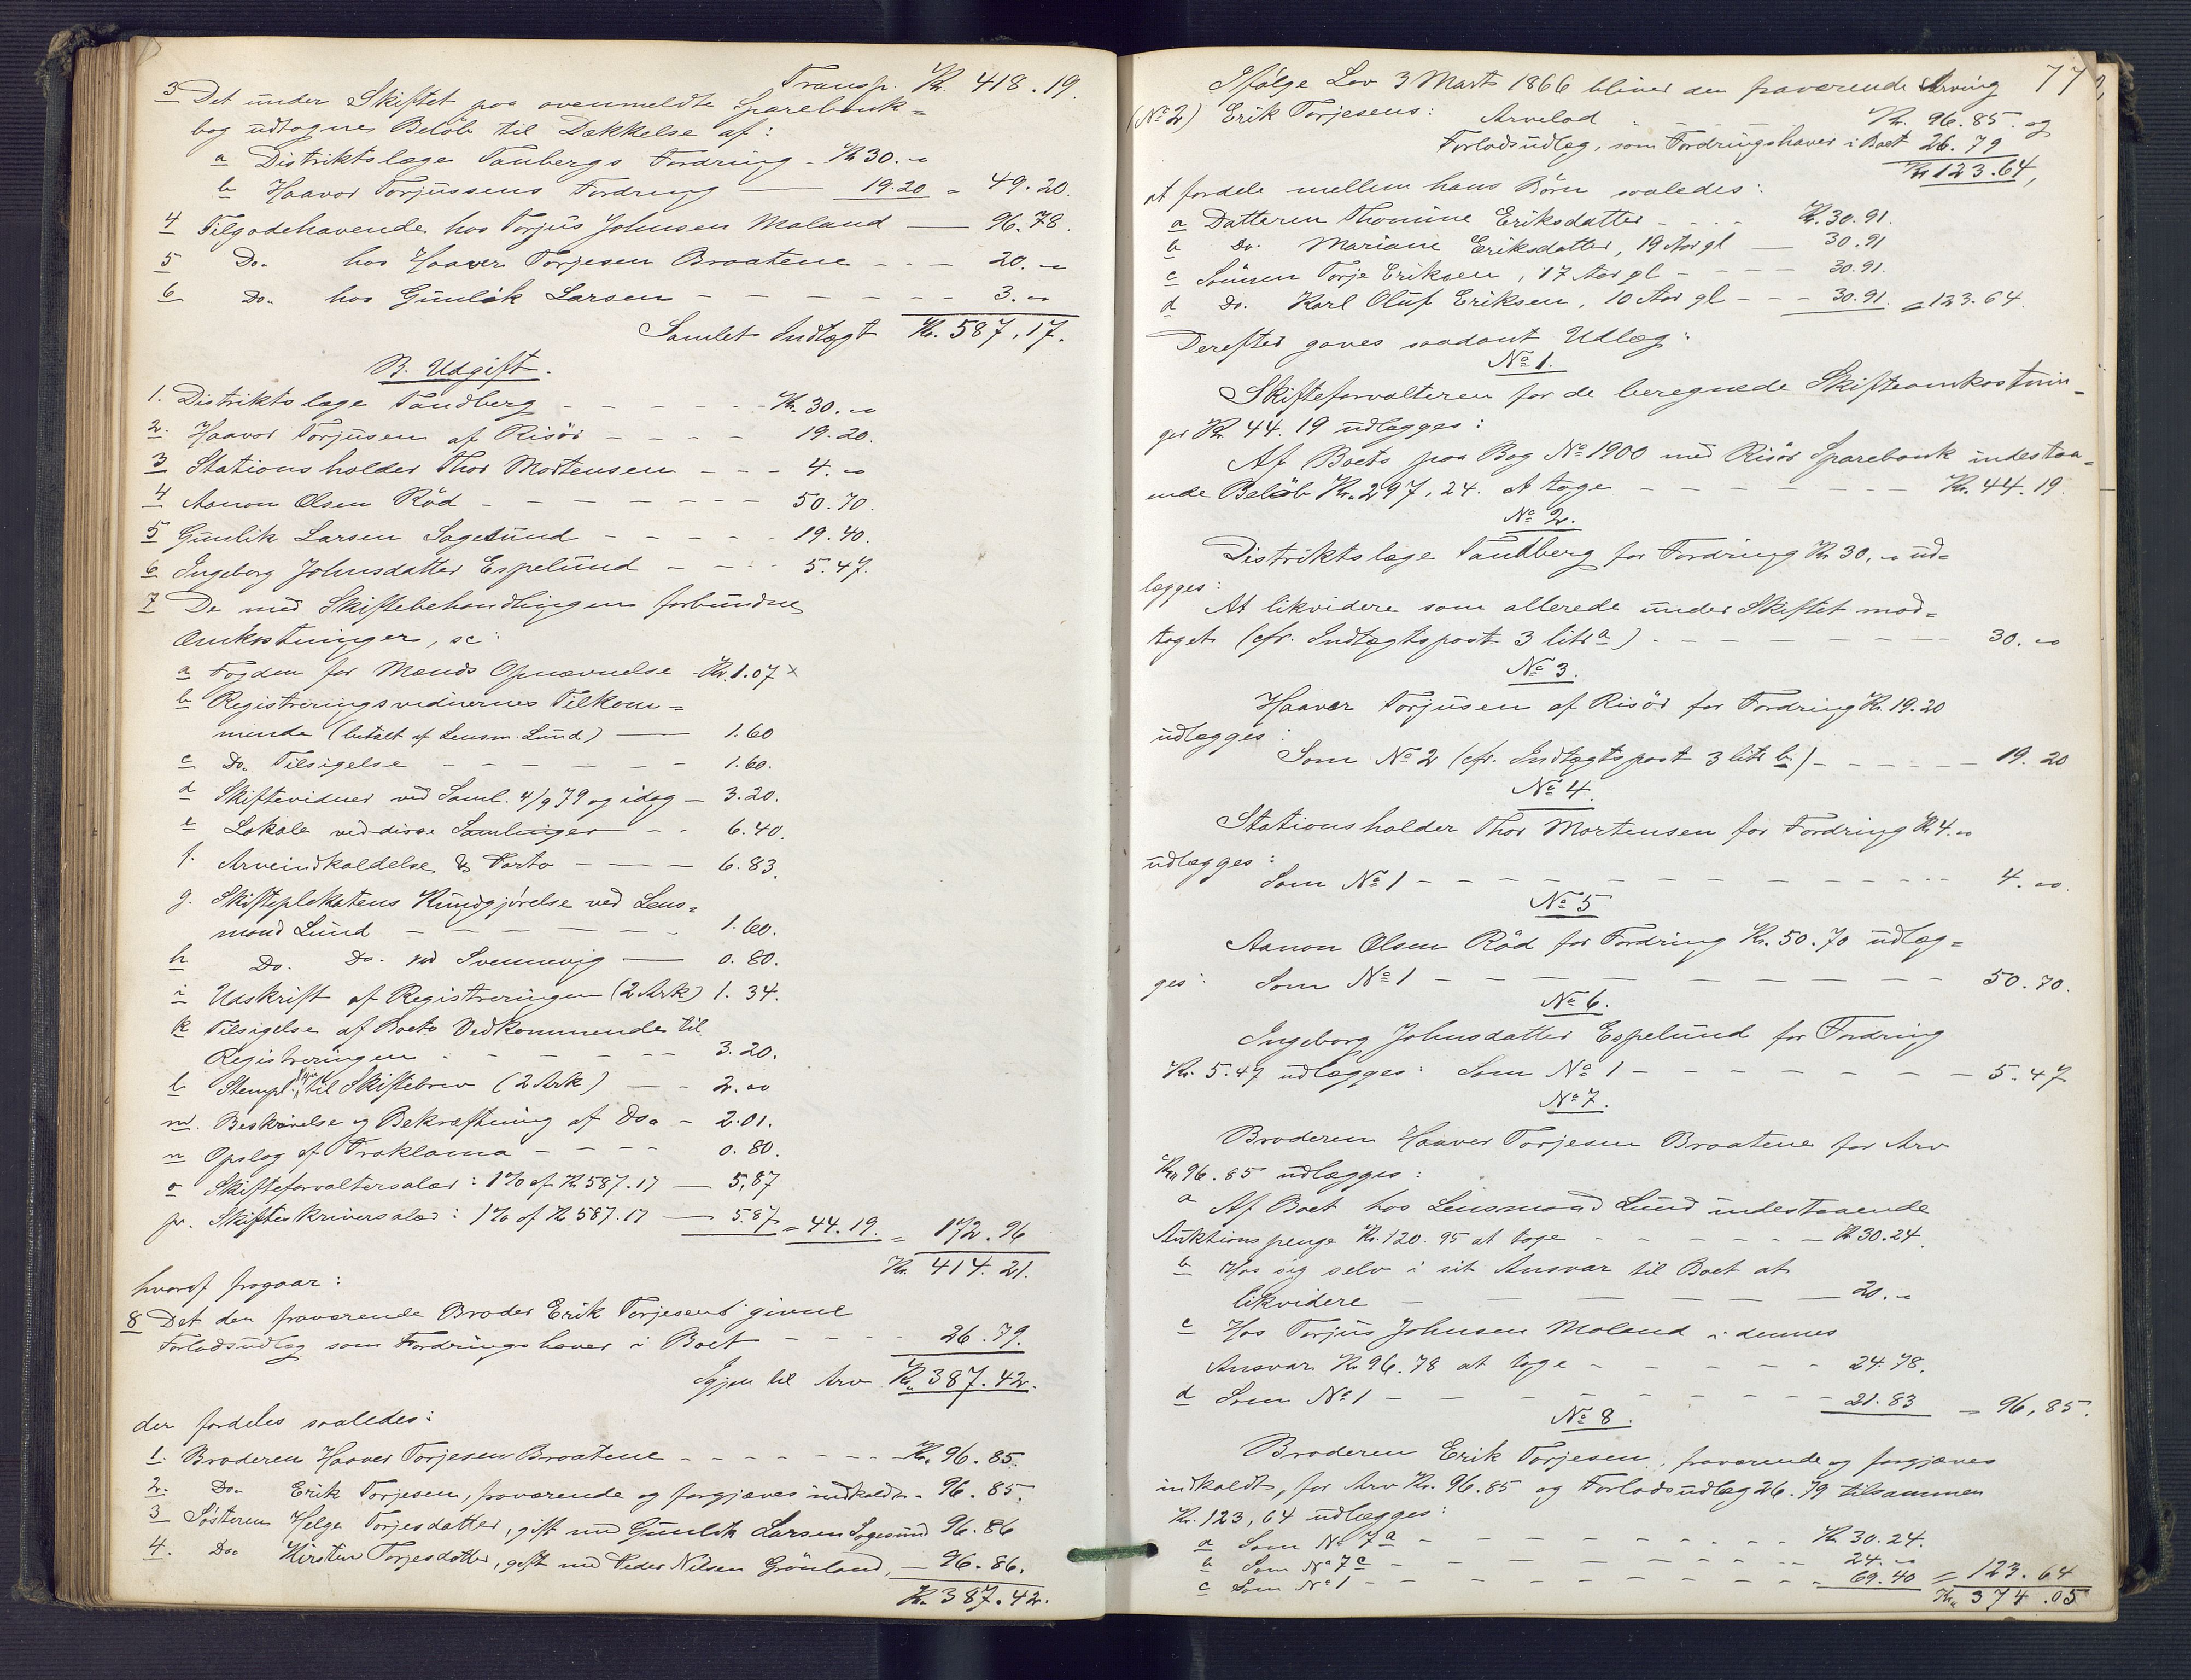 Transp. Kr. 418.19.
3 Det under Skiftet paa ovenmeldte Sparebank=
bog udtagnes Beløb til Dækkelse af:
a Distriktslæge Tanbergs Fordring - Kr 30. "
b Haavor Torjussens Fordring — 19.20 = 49.20.
4 Tilgodehavende hos Torjus Johnsen Moland — 96.78.
5 Do. hos Haaver Torjesen Braatene - - - 20. "
6 Do. hos Gunlek Larsen - - - - - - - 3. "
Samlet Indtægt Kr. 587.17.
B. Udgift.
1. Distriktslæge Tandberg - - - - - - Kr. 30. "
2. Haavor Torjusen af Risör - - - - 19.20.
3 Stationsholder Thor Mortensen - - - 4. "
4 Aanon Olsen Röd - - - - - - - 50.70.
5 Gunlik Larsen Sagesund - - - - - 19.40.
6 Ingeborg Johnsdatter Espelund - - - 5.47.
7 De med Skiftebehandlingen forbundne
Omkostninger, sc:
a Fogden for Mænds Opnævnelse - Kr. 1.07 x
b Registreringsvidnernes Tilkom=
mende (betalt af Lensm. Lund) — 1.60
c Do. Tilsigelse - - - - - - - 1.60.
d Skiftevidner ved Saml. 4/9 79 og idag — 3.20.
e Lokale ved disse Samlinger - - 6.40.
f. Arveindkaldelse & Porto - - - - 6.83.
g. Skifteplakatens Kundgjörelse ved Lens=
mand Lund - - - - - - - 1.60.
h Do. Do. ved Svennevig — 0.80.
i Udskrift af Registreringen (2 Ark) 1.34.
k Tilsigelse af Boets Vedkommende til
Registreringen - - - - - - 3.20.
l Stempl. til Skiftebrev (2 Ark) - - 2. "
m. Beskrivelse og Bekræftning af Do. - 2.01.
n Opslag af Proklama - - - - 0.80.
o Skifteforvaltersalær: 1% af Kr 587.17 — 5,87
p. Skifteskriversalær: 1% af Kr 587.17 — 5.87 = 44.19. = 172.96
Kr. 414.21.
hvoraf fragaar:
8 Det den fraværende Broder Erik Torjesens givne
Forlodsudlæg som Fordringshaver i Boet - - - 26.79.
Igjen til Arv Kr. 387.42.
der fordeles saaledes:
1. Broderen Haaver Torjesen Braatene - - - - - - - Kr. 96.85.
2. Do. Erik Torjesen, fraværende og forgjæves indkaldt - 96.85.
3 Søsteren Helge Torjesdatter, gift med Gunlik Larsen Sagesund 96.86
4. Do. Kirsten Torjesdatter, gift med Peder Nilsen Grönland, — 96.86.
Kr. 387.42.
77
Ifölge Lov 3 Marts 1866 bliver den fraværende Arving
(No 2) Erik Torjesens: Arvelod - - - Kr. 96.85. og
Forlodsudlæg, som Fordringshaver i Boet 26.79
Kr 123.64,
at fordele mellem hans Börn saaledes:
a Datteren Thomine Eriksdatter - - - - Kr. 30.91.
b Do. Mariane Eriksdatter, 19 Aar gl — 30.91
c Sönnen Torje Eriksen, 17 Aar gl - - - - 30.91.
d Do. Karl Oluf Eriksen, 10 Aar gl - - - 30.91. = 123.64.
Derefter gaves saadant Udlæg:
No 1.
Skifteforvalteren for de beregnede Skifteomkostnin=
ger Kr. 44.19 udlægges:
Af Boets paa Bog No 1900 med Risör Sparebank indestaa=
ende Belöb Kr. 297.24. at tage - - - - - - - - Kr. 44.19.
No 2.
Distriktslæge Tandberg for Fordring Kr 30. " ud=
lægges:
At likvidere som allerede under Skiftet mod=
taget (cfr. Indtægtspost 3 litr a) - - - - - - - - 30. "
No 3.
Haaver Torjusen af Risör for Fordring Kr. 19.20
udlægges:
Som No 2 (cfr. Indtægtspost 3 litr b) - - - - - - 19.20
No 4.
Stationsholder Thor Mortensen for Fordring Kr 4. "
udlægges:
Som No 1 - - - - - - - - - - - - 4. "
No 5
Aanon Olsen Röd for Fordring Kr. 50.70 udlæg=
ges: Som No 1 - - - - - - - - - - 50.70.
No 6.
Ingeborg Johnsdatter Espelund for Fordring
Kr. 5.47 udlægges: Som No 1 - - - - - - - - 5.47
No 7.
Broderen Haaver Torjesen Braatene for Arv
Kr. 96.85 udlægges:
a Af Boet hos Lensmand Lund indestaaende
Auktionspenge Kr. 120.95 at tage - - - - - - Kr 30.24.
b Hos sig selv i sit Ansvar til Boet at
likvidere - - - - - - - - 20. "
c Hos Torjus Johnsen Moland i dennes
Ansvar Kr 96.78 at tage - - - - - - 24.78.
d Som No 1 - - - - - - - - - 21.83 = 96,85.
No 8.
Broderen Erik Torjesen, fraværende og forgjæves
indkaldt, for Arv Kr. 96.85 og Forlodsudlæg 26.79 tilsammen
Kr. 123,64 udlægges:
a Som No 7 a - - - - - - - - Kr 30.24.
b Som No 7 c - - - - - - - - 24. "
c Som No 1 - - - - - - - - - 69.40 = 123.64
Kr. 374.05